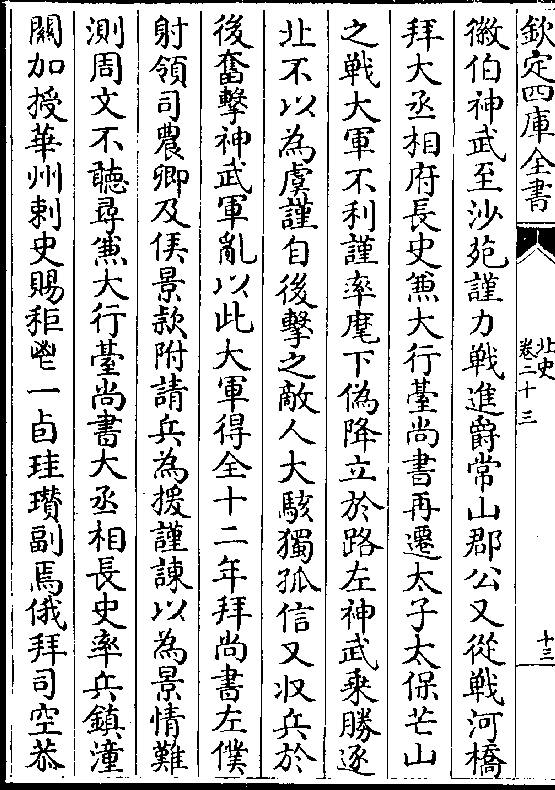 欽定四庫全書
北史
卷二十三
十三
徽伯神武至沙苑謹力戰進爵常山郡公又從戰河橋
拜大丞相府長史兼大行臺尚書再遷太子太保芒山
之戰大軍不利謹率麾下偽降立於路左神武乗勝逐
北不以為虞謹自後擊之敵人大駭獨孤信又収兵於
後奮擊神武軍亂以此大軍得全十二年拜尚書左僕
射領司農卿及侯景款附請兵為援謹諫以為景情難
測周文不聽尋兼大行臺尚書大丞相長史率兵鎮潼
關加授華州刺史賜秬鬯一卣珪瓚副焉俄拜司空恭